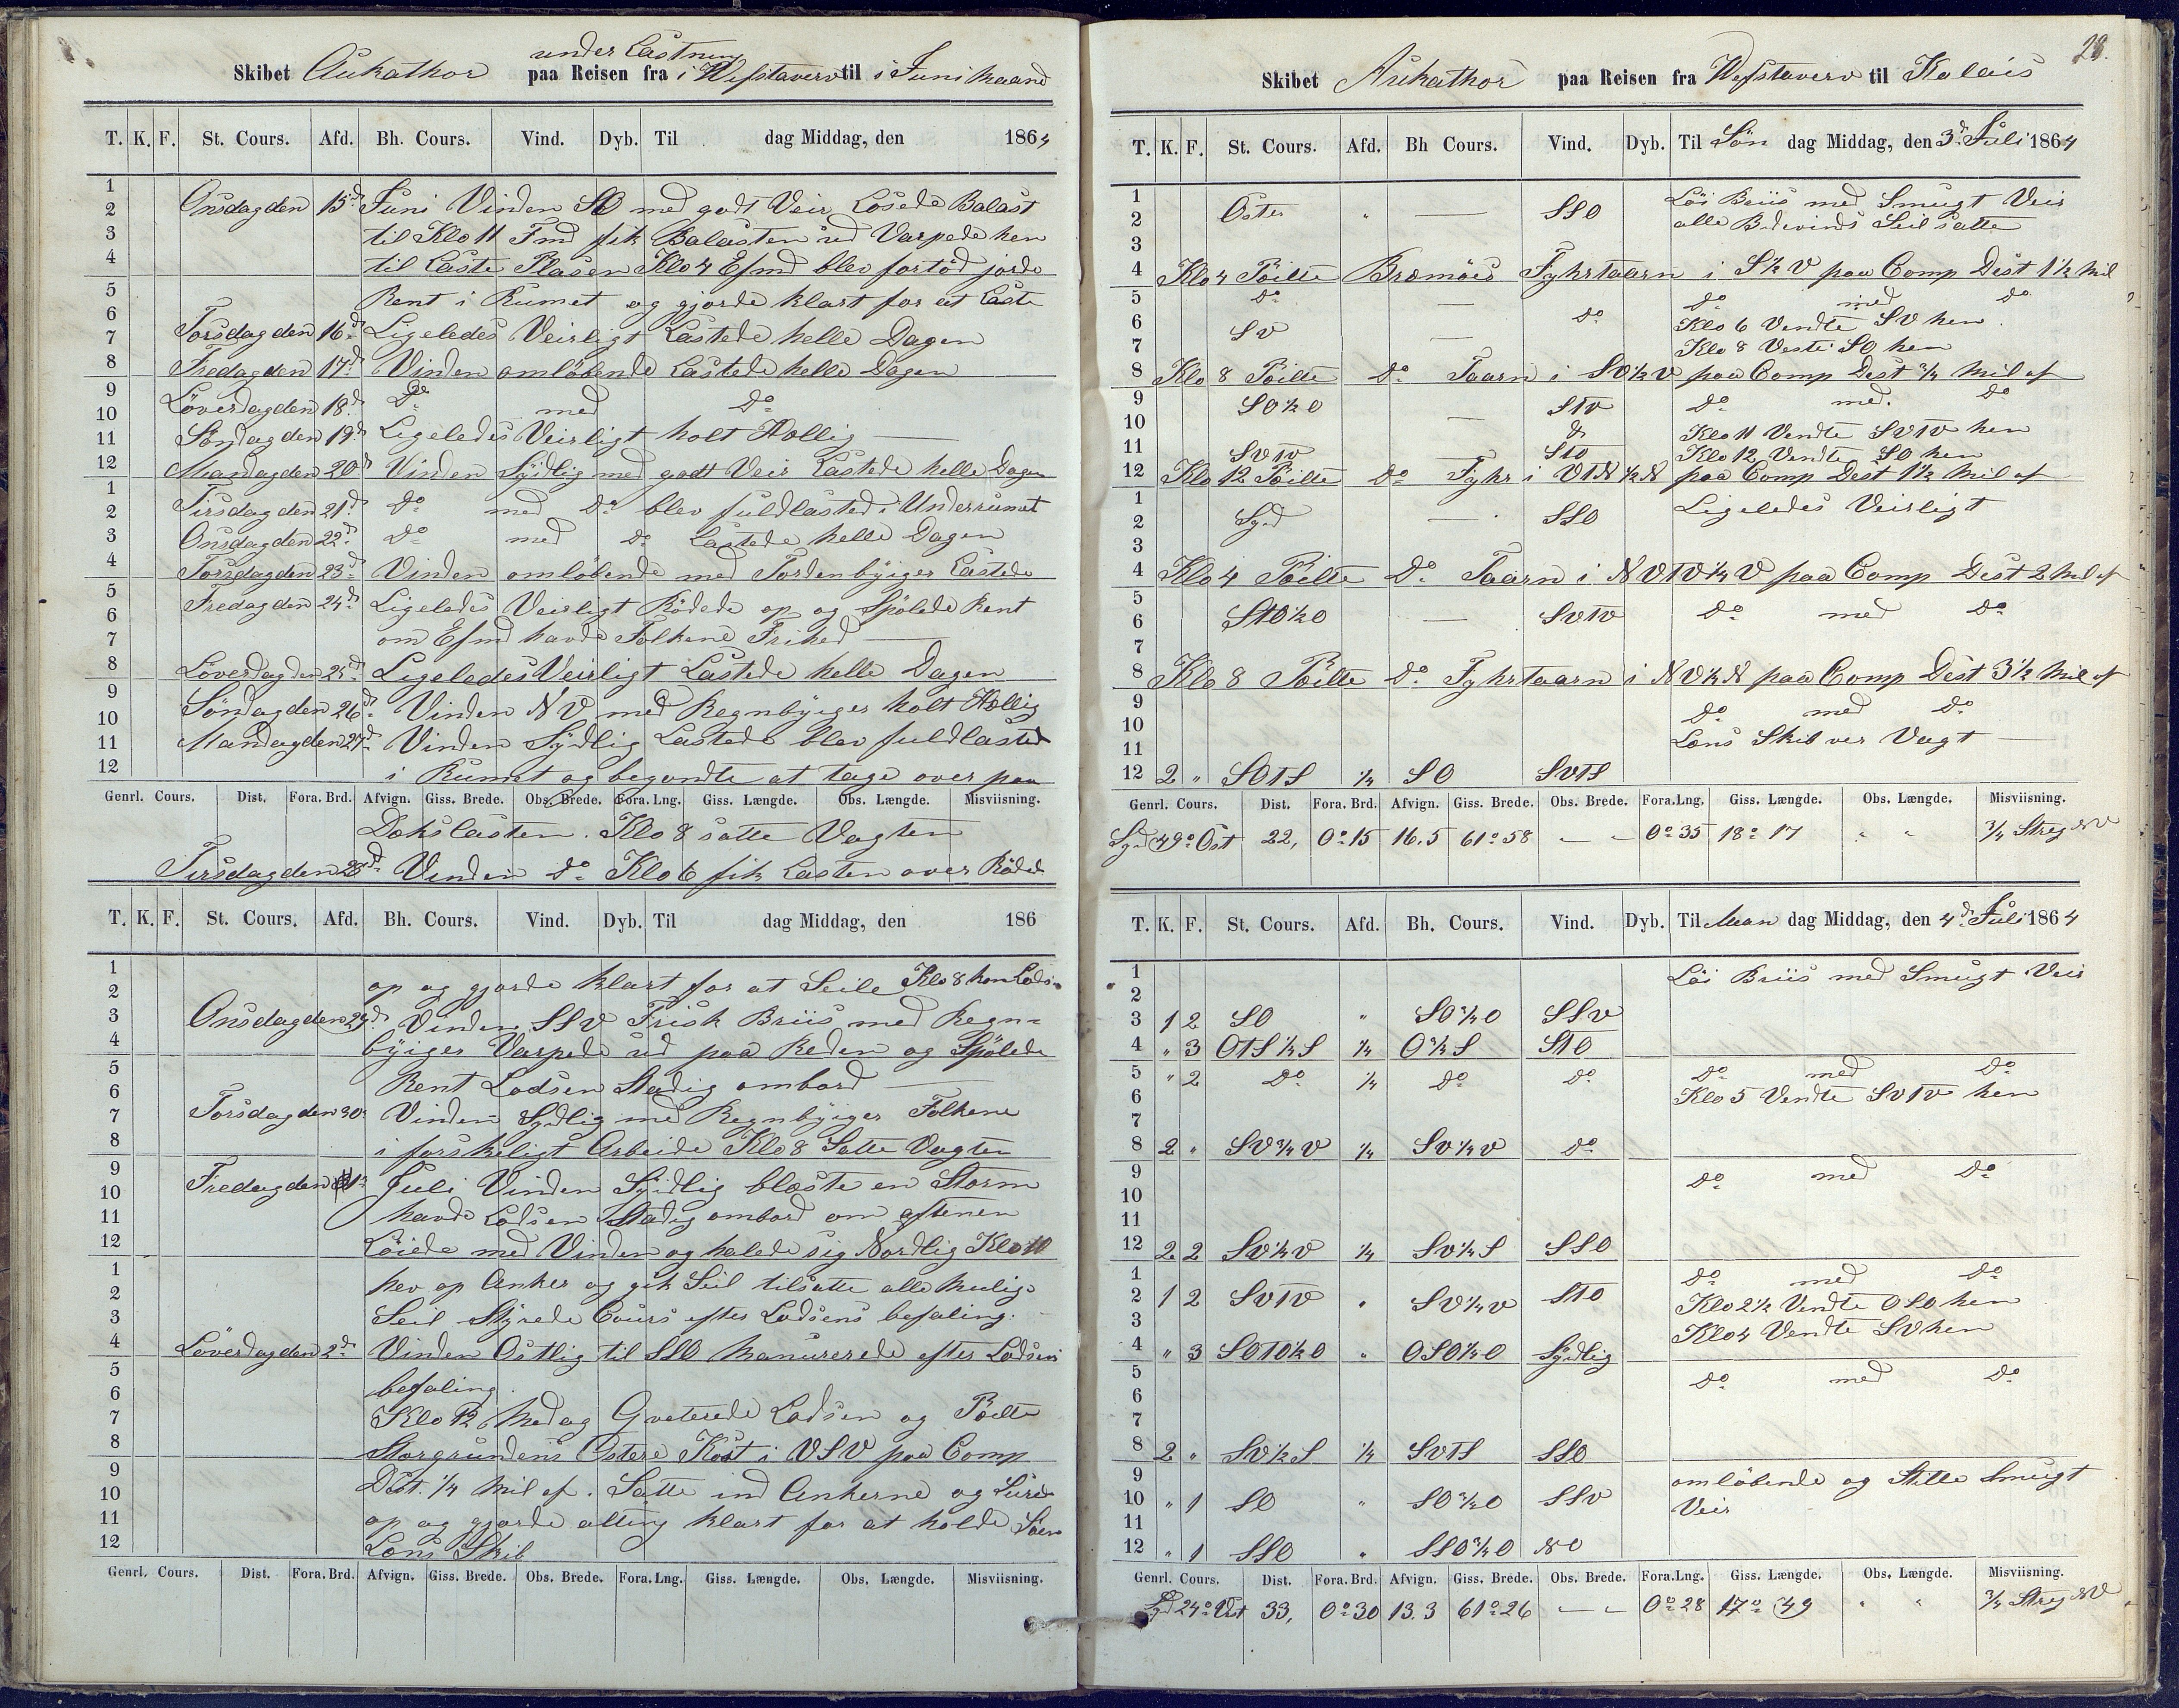 under Lastning
Skibet Aukathor paa Reisen fra i Wefstaverv til i Juni Maaned
T. K. F. St. Cours. Afd. Bh. Cours. Vind. Dyb. Til dag Middag, den 1864
1
2 Onsdag den 15d Juni Vinden SO med godt Veir Losede Balast
3 til Klo 11 Fmd fik Balasten ud Varpede hen
4 til Laste Plasen Klo 4 Efmd blev fortöd jorde
5 Rent i Rumet og gjorde klart for at Laste
6
7 Torsdag den 16d Ligeledes Veirligt Lastede helle Dagen
8 Fredag den 17d Vinden omlöbende Lastede helle Dagen
9 Löverdag den 18d Do med Do
10
11 Söndag den 19d Ligeledes Veirligt holt Hellig
12 Mandag den 20d Vinden Sydlig med godt Veir Lastede helle Dagen
1
2 Tirsdag den 21d Do med Do blev fuldlasted i Underrumet
3 Onsdag den 22d Do med Do Lastede helle Dagen
4 Torsdag den 23d Vinden omlöbende med Tordenbyiger Lastede
5 Fredag den 24d Ligeledes Veirligt Rödede op og Spölede Rent
6
7 om Efmd havde Folkene Frihed
8 Löverdag den 25d Ligeledes Veirligt Lastede helle Dagen
9
10 Söndag den 26d Vinden NV med Regnbyiger holt Hellig
11 Mandag den 27d Vinden Sydlig Lastede blev fuldlasted
12 i Rumet og begyndte at tage over paa
Genrl. Cours. Dist. Fora. Brd. Afvign. Giss. Brede. Obs. Brede. Fora. Lng. Giss. Længde. Obs. Længde. Misviisning.
Dekslasten. Klo 8 satte Vagten
Tirsdag den 28d Vinden do Klo 6 fik Lasten over Röded
T. K. F. St. Cours. Afd. Bh. Cours. Vind. Dyb. Til dag Middag, den 186
1
2 op og gjorde klart for at Seile Klo 8 kom Lods
3 Onsdag den 29d Vinden SSV Frisk Briis med Regn=
4 byiger Varpede ud paa Reden og Spölede
5 Rent Lodsen Stadig ombord
6
7 Torsdag den 30 Vinden Sydlig med Regnbyiger Folkene
8 i forskeligt Arbeide Klo 8 Satte Vagten
9
10 Fredag den 1d Juli Vinden Sydlig blæste en Storm
11 havde Lodsen Stadig ombord om aftenen
12 Löiede med Vinden og halede sig Nordlig Klo 10
1
2 hev op Anker og gik Seil tilsatte alle mulig
3 Seil Styrede Cours efter Lodsens befaling.
4 Löverdag den 2d Vinden Ostlig til SSO Manurerede efter Lodsens
5 befaling
6
7 Klo 12 Medag Qveterede Lodsen og Peilte
8 Storgrundens Ostere Kost i VSV paa Comp
9
10 Dist. 1/4 Mil af. Satte ind Ankerne og Surede
11 op og gjorde alting klart for at holde Söen
12 Lens Skib
Genrl. Cours. Dist. Fora. Brd. Afvign. Giss. Brede. Obs. Brede. Fora. Lng. Giss. Længde. Obs. Længde. Misviisning.
28.
Skibet Aukathor paa Reisen fra Wefstaverv til Kalais
T. K. F. St. Cours. Afd. Bh Cours. Vind. Dyb. Til Sön dag Middag, den 3d Juli 1864
1 Löi Briis med Smugt Veir
2 Oster " — SSO alle Bidevinds Seil satte
3
4 Klo 4 Peilte Bremöes Fyhrtaarn i S½V paa Comp Dist 1½ Mil
5 do — do med do
6 SV do Klo 6 Vendte SV hen
7 — Klo 8 Veste SO hen
8 Klo 8 Peilte Do Taarn i SV½V paa Comp Dist ¾ Mil af
9 SO½O STV do med. do
10 —
11 SVTV do Klo 11 Vendte SVTV hen
STO Klo 12 Vendte SO hen
12 Klo 12 Peilte Do Fyhr i VTN½N paa Comp Dest 1½ Mil af
1
2 Syd — SSO Ligeledes Veirligt
3
4 Klo 4 Peilte Do Taarn i NVTV¼V paa Comp Dest 2 Mil af
5
6 STO½O — SVTV Do med Do
7
8 Klo 8 Peilte Do Fyhrtaarn i NV½N paa Comp Dest 3½ Mil af
9
10 Do med Do
11 Lens Skib ver Vagt
12 2 " SOTS ¼ SO SVTS
Genrl. Cours. Dist. Fora. Brd. Afvign. Giss. Brede. Obs. Brede. Fora. Lng. Giss. Længde. Obs. Længde. Misviisning.
Syd 49° Ost 22, 0°15 16.5 61°58 — 0°35 18°17 " " ¾ Streg NV
T. K. F. St. Cours. Afd. Bh. Cours. Vind. Dyb. Til Man dag Middag, den 4d Juli 1864
1 Löi Briis med Smugt Veir
2
3 1 2 SO " SO¾O SSV
4 " 3 OTS½S ¼ O¾S STO
5 " 2 Do ¼ Do Do Do med Do
6 Klo 5 Vendte SVTV hen
7
8 2 " SV¾V ¼ SV¼V Do
9 Do med Do
10
11
12 2 2 SV½V ¼ SV¼S SSO
1 Do med Do
2 1 2 SVTV " SV¼V STO Klo 2½ Vendte OSO hen
3 Klo 4 Vendte SV hen
4 " 3 SOTO½O " OSO¼O Sydlig
5 Do med Do
6
7
8 2 " SV½S ¼ SVTS SSO
9 omlöbende og Stille Smugt
10 " 1 SO " SO¾O SSV Veir
11
12 " 1 SSO " SSO¾O NO
Genrl. Cours. Dist. Fora. Brd. Afvign. Giss. Brede. Obs. Brede. Fora. Lng. Giss. Længde. Obs. Længde. Misviisning.
Syd 24° Vest 33, 0°30 13.3 61°26 — 0°28 17°49 " " ¾ Streg NV